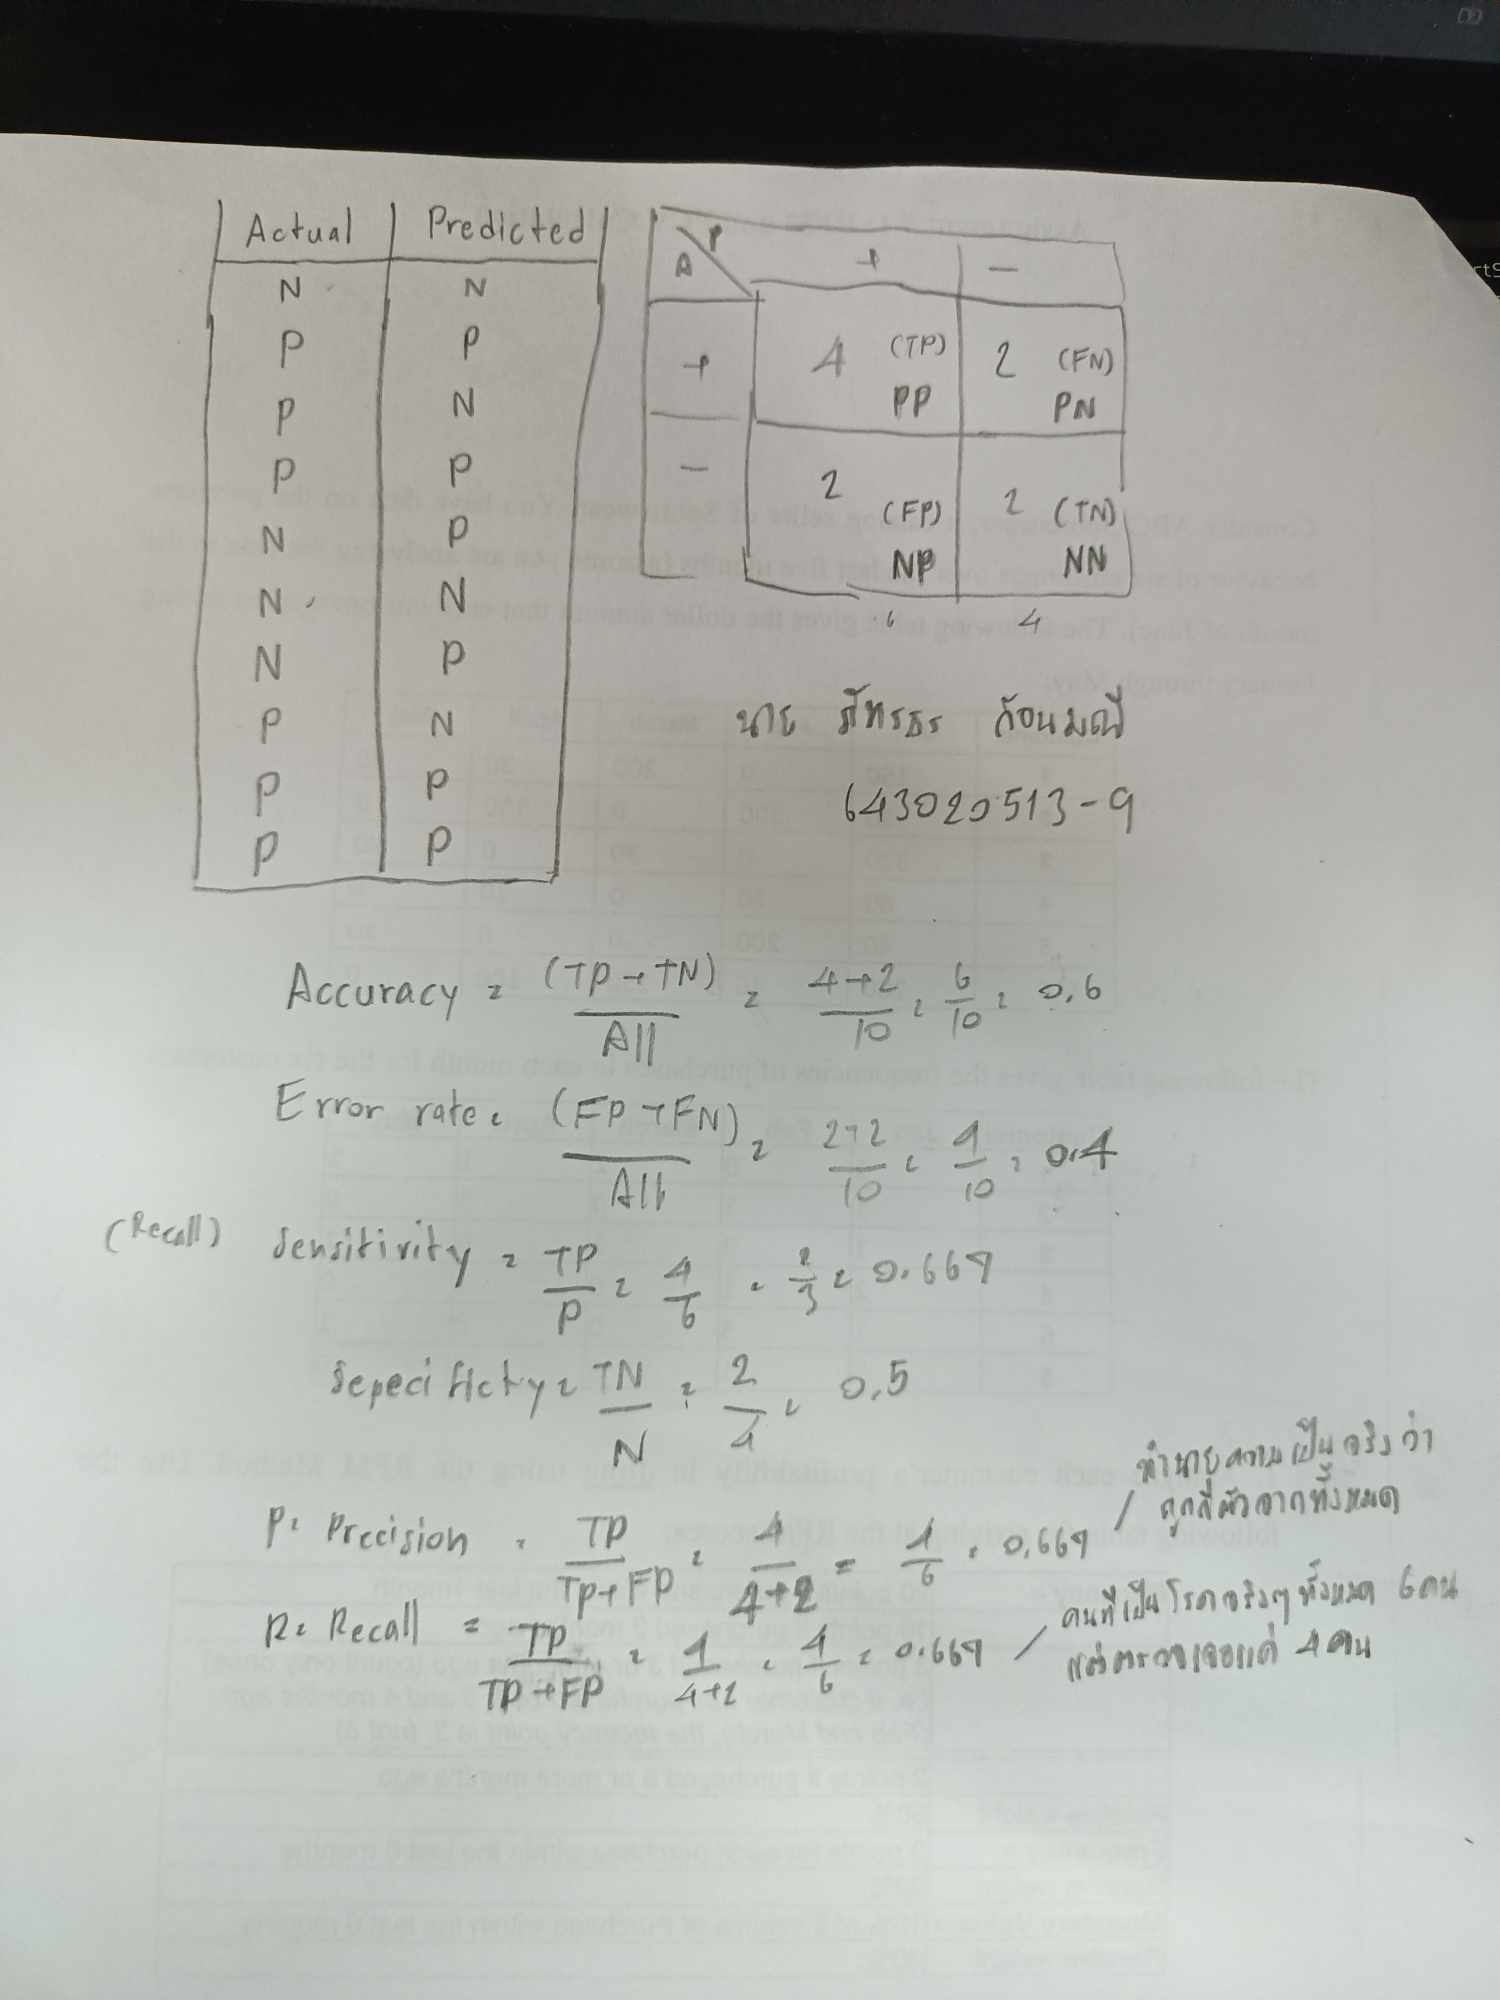 Actual Predicted
N N
P P
P N
P P
N P
N N
N P
P N
P P
P P
P
A + -
+ 4 (TP) 2 (FN)
PP PN
- 2 (FP) 2 (TN)
NP NN
6 4
นาย ภัทรธร ก้อนมณี
643020513-9
Accuracy = (TP+TN)/All = 4+2/10 = 6/10 = 0.6
Error rate = (FP+FN)/All = 2+2/10 = 4/10 = 0.4
(Recall) Sensitivity = TP/P = 4/6 = 2/3 = 0.667
Sepecificty = TN/N = 2/4 = 0.5
P = Precision = TP/TP+FP = 4/4+2 = 4/6 = 0.667 / ทำนายความเป็นจริงว่า
ถูกกี่ตัวจากทั้งหมด
R = Recall = TP/TP+FP = 4/4+2 = 4/6 = 0.667 / คนที่เป็นโรคจริงๆ ทั้งหมด 6 คน
แต่ตรวจเจอแค่ 4 คน